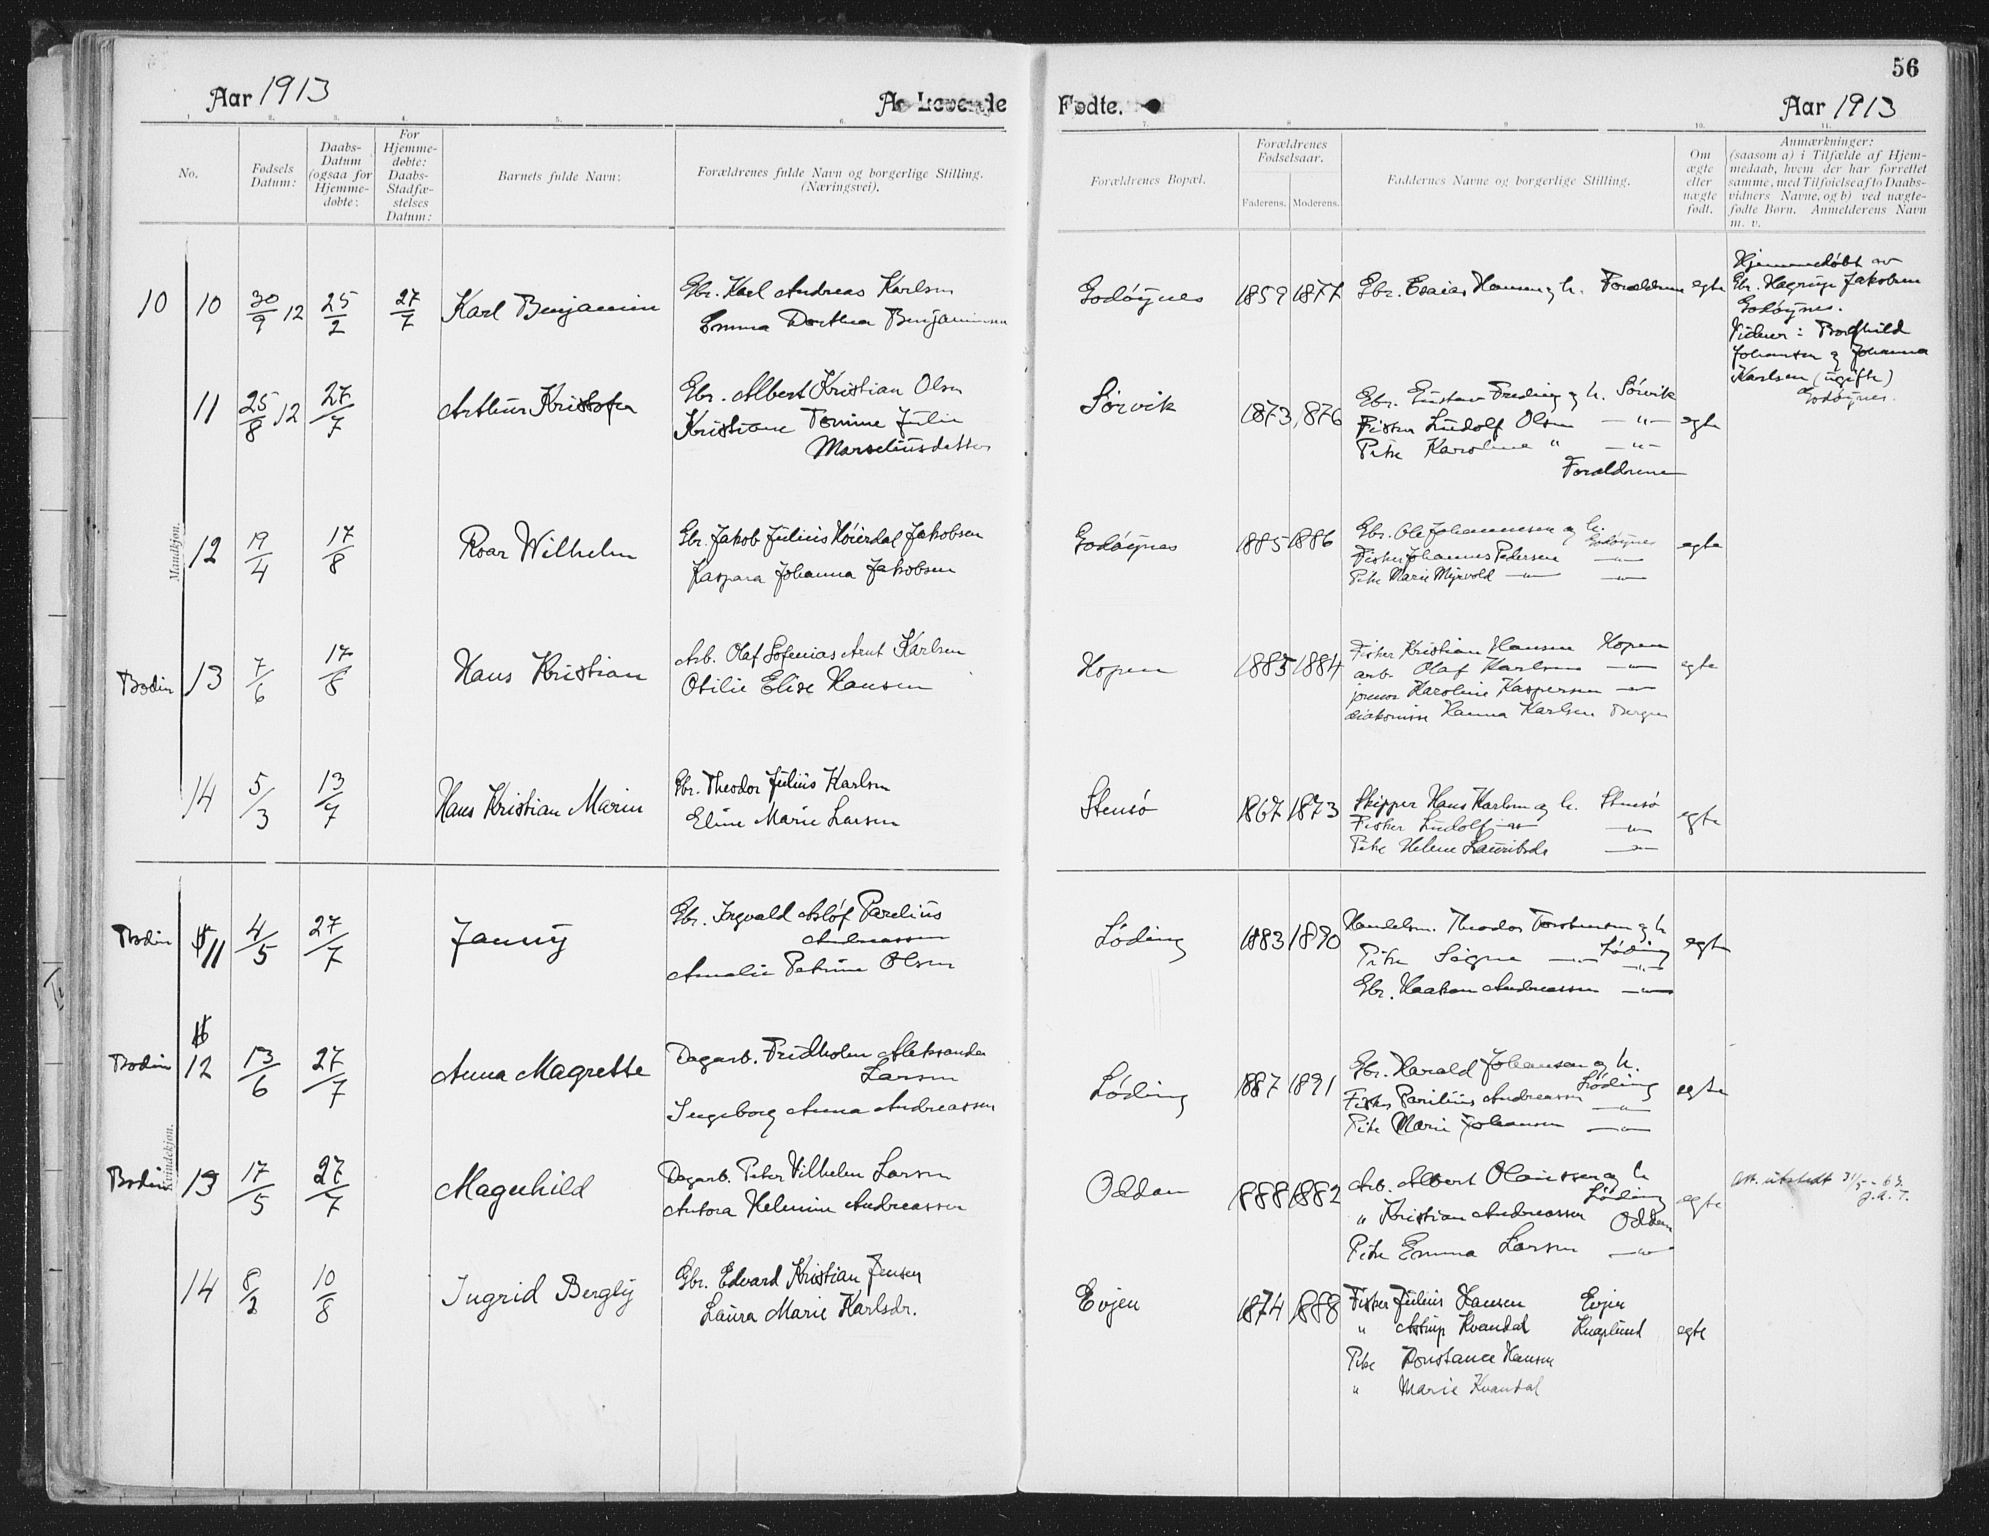 56
Aar 1913
Av Levende Fødte.
Aar 1913
1. 2. 3. 4. 5. 6. 7. 8 9 10. 11.
No.
Fødsels Datum:
Daabs-Datum (ogsaa for Hjemme-døbte:
For Hjemme-døbte: Daabs-Stadfæ-stelses Datum:
Barnets fulde Navn:
Forældrenes fulde Navn og borgerlige Stilling. (Næringsvei).
Forældrenes Bopæl.
Forældrenes Fødselsaar.
Faderens. Moderens.
Faddernes Navne og borgerlige Stilling.
Om ægte eller nægte født.
Anmærkninger: (saasom a) i Tilfælde af Hjem-medaab, hvem der har forrettet samme, med Tilføielse af to Daabs-vidners Navne, og b) ved nægte-fødte Børn. Anmelderens Navn m. v.
Mandkjøn.
10 10 30/9 12 25/2 27/7 Karl Benjamin
Gbr. Karl Andreas Karlsen
Emma Dorthea Benjaminsen
Godøynes 1859 1877 Gbr. Esaias Hansen og h. Forældrene egte
Hjemmedøbt av
Gbr. Hagrup Jakobsen
Godøynes.
Vidner: Borghild
Johansen og Johanna
Karlsen (ugifte)
Godøynes.
11 25/8 12 27/7 Arthur Kristofer
Gbr. Albert Kristian Olsen
Kristiane Tomine Julie
Marseliusdatter
Sørvik 1873 1876 egte
Gbr. Gustav Freding og h. Sørvik
Fisker Ludolf Olsen —"—
Pike Karoline " —"—
Forældrene
12 19/4 17/8 Roar Wilhelm
Gbr. Jakob Julius Høierdal Jakobsen
Kaspara Johanna Jakobsen
Godøynes 1885 1886 egte
Gbr. Ole Johannesen og h. Godøynes
Fisker Johannes Pedersen —"—
Pike Marie Myrvold —"— —"—
Bodin 13 7/6 17/8 Hans Kristian
Arb. Olaf Sofenias Arnt Karlsen
Otilie Elise Hansen
Hopen 1885 1884 egte
Fisker Kristian Hansen Hopen
arb. Olaf Karlsen —"—
Karoline Kaspersen —"—
diakonisse Hanna Karlsen Bergen
14 5/3 13/7 Hans Kristian Marin
Gbr. Theodor Julius Karlsen
Eline Marie Larsen
Stensø 1867 1873 egte
Skipper Hans Karlsen og h. Stensø
Fisker Ludolf —"— —"—
Pike Helene Lauritsdr —"—
Kvindekjøn.
Bodin 11 4/5 27/7 Janny
Gbr. Ingvald Asløf Parelius
Andreassen
Amalie Petrine Olsen
Løding 1883 1890 egte
Handelsm. Theodor Torstensen og h
Løding
Pike Signe —"— —"—
Gbr. Haakon Andreassen —"—
Bodin 12 13/6 27/7 Anna Magrethe
Dagarb. Fridholm Aleksander
Larsen
Ingeborg Anna Andreassen
Løding 1887 1891 egte
Gbr. Harald Johansen og h.
Løding
Fisker Parilius Andreassen —"—
Pike Marie Johansen —"—
Bodin 13 17/5 27/7 Magnhild
Dagarb. Peter Vilhelm Larsen
Antora Helmine Andreassen
Oddan 1888 1882 egte
Arb. Albert Olaussen og h
Løding
" Kristian Andreassen Oddan
Pike Emma Larsen —"—
Att. utstedt 31/5 - 63.
J.A.T.
14 8/2 10/8 Ingrid Bergly
Gbr. Edvard Kristian Jensen
Laura Marie Karlsdr.
Evjen 1874 1888 egte
Fisker Julius Hansen Evjen
" Astrup Kvandal Knaplund
Pike Konstance Hansen
" Marie Kvandal